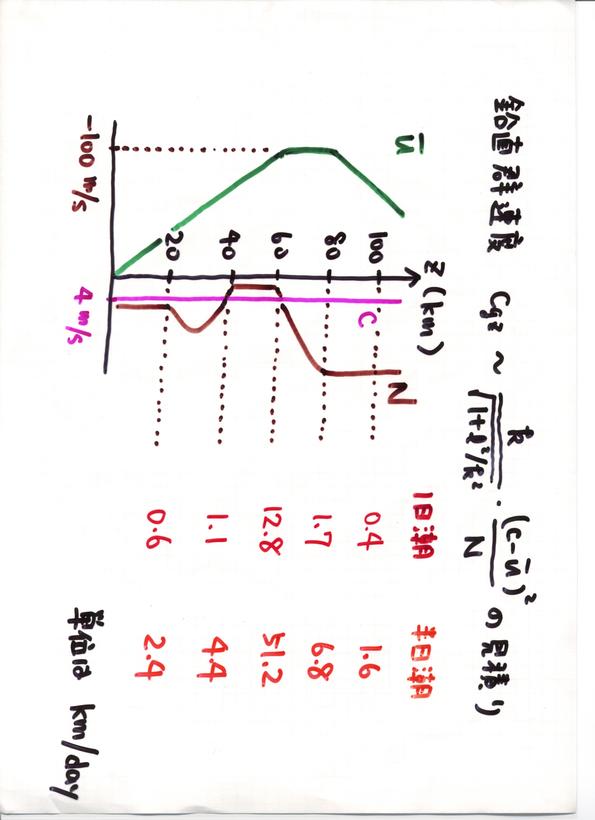 鉛直群速度 Cgz ~ k/√(1+ℓ²/k²) · (c-ū)²/N の見積り
ū Z (km) N 1日潮 半日潮
100 C 0.4 1.6
80 1.7 6.8
60 12.8 51.2
40 1.1 4.4
20 0.6 2.4
-100 m/s 4 m/s
単位は km/day